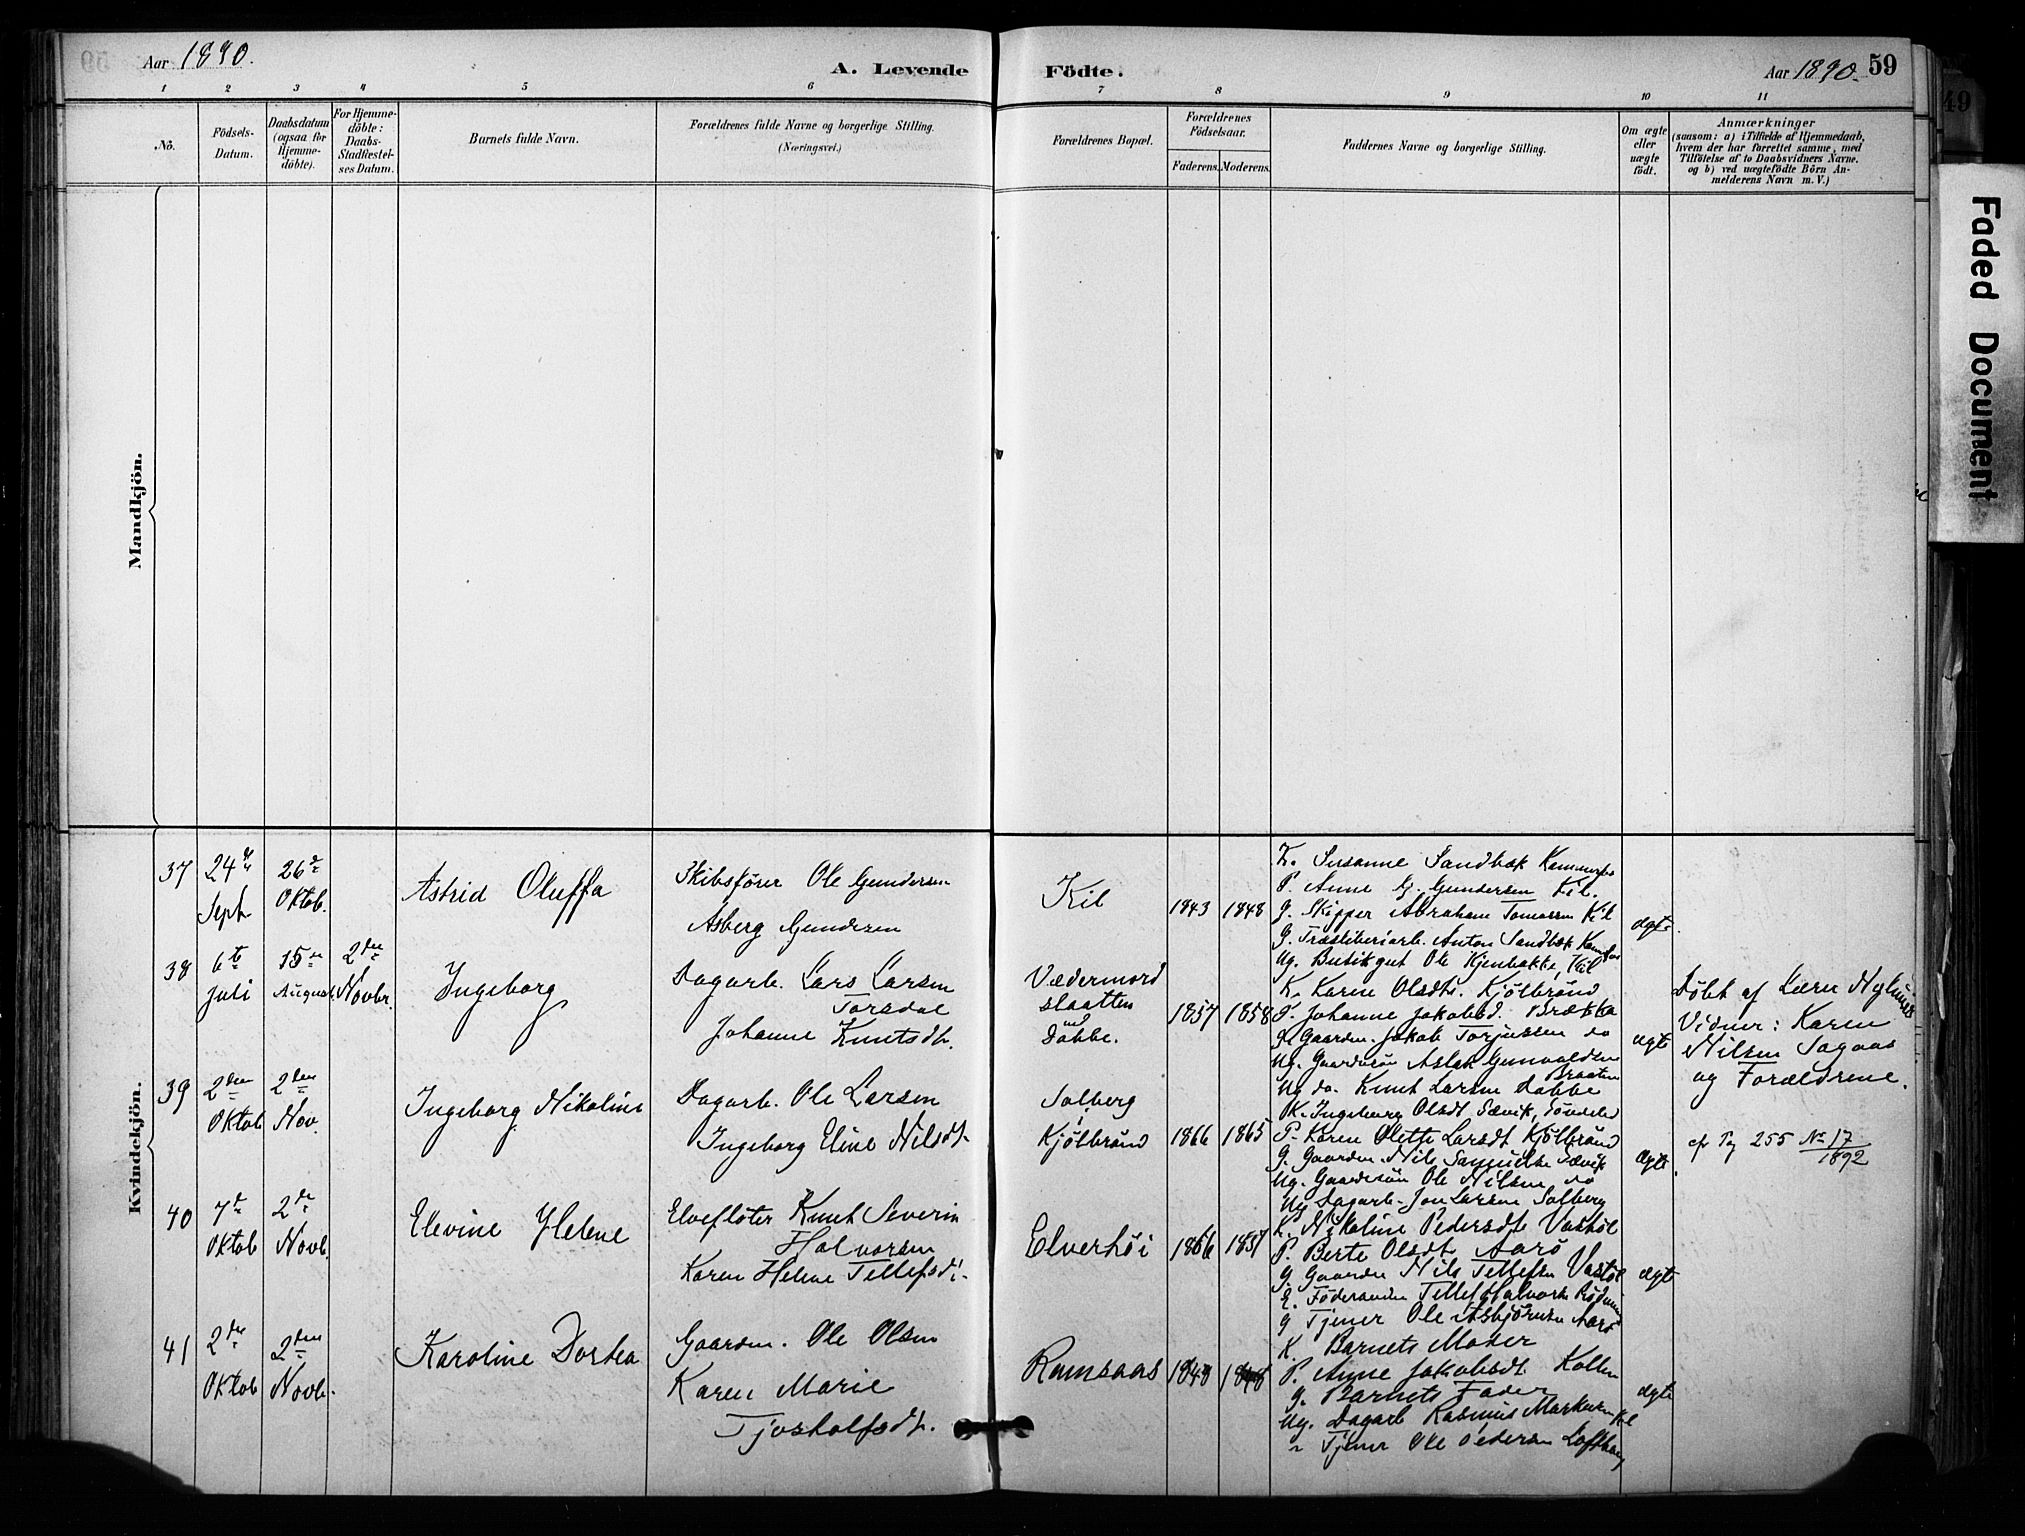 Aar 1890.
A. Levende Födte.
Aar 1890. 59
1 2 3 4 5 6 7 8 9 10 11
No.
Födsels-
Datum.
Daabsdatum
(ogsaa for
Hjemme-
döbte).
For Hjemme-
döbte:
Daabs-
Stadfæstel-
ses Datum.
Barnets fulde Navn.
Forældrenes fulde Navne og borgerlige Stilling.
(Næringsvei.)
Forældrenes Bopæl.
Forældrenes
Födselsaar.
Faderens. Moderens.
Faddernes Navne og borgerlige Stilling.
Om ægte
eller
uægte
födt.
Anmærkninger
(saasom: a) i Tilfælde af Hjemmedaab,
hvem der har forrettet samme, med
Tilföielse af to Daabsvidners Navne.
og b) ved uægtefödte Börn An-
melderens Navn m. V.)
Mandkjön.
Kvindekjön.
37
24
Sept
26
Oktob.
Astrid Oluffa
Skibsfører Ole Gundersen
Asberg Gundersen
Kil
1843 1848
Susanne Sandbæk
P. Anne G. Gundersen Kil.
G. Skipper Abraham Tomassen Kil
G. Anton Sandbæk
Ug. Butikgut Ole Kil
ægte.
38
6te
Juli
15
August.
2den
Novbr.
Ingeborg
Dagarb. Lars Larsen
Torsdal
Johanne Knutsdtr.
Vædermord
slaatten
Dobbe.
1857 1858
K. Karen Olsdtr. Kjølbrønd
P. Johanne Jakobsd. Brække
Gaardm. Jakob Torjussen do
Ug. Gaardssøn Aslak Gunvaldsen
Braaten
Ug do. Knut Larsen Dobbe
ægte
Døbt af Lærer
Vidner: Karen
Nilsen Sagaas
og Forældrene.
39
2den
Oktob
2den
Nov.
Ingeborg Nikoline
Dagarb. Ole Larsen
Ingeborg Eline Nilsdt.
Solberg
Kjølbrønd
1866 1865
K. Ingeborg Olsdt Sævik, Søndeled
P. Karen Olette Larsdt Kjølbrønd
G. Gaardm. Nils Sævik
Ug. Gaardssøn Ole Nilsen do
Ug Dagarb. Jon Larsen Solberg
Ægte.
cfr Pag 255 No 17
1892
40
7de
Oktob
2de
Novb.
Elevine Helene
Elvefløter Knut Severin
Halvorsen
Karen Helene Tellefsdt.
Elverhøi
1866 1857
K. Nikoline Pedersdtr Vastøl
P. Berte Olsdt Aarø
G. Gaardm Nils Tellefsen Vastøl
E. Føderaadm Tellef Halvorsen
G Tjener Ole Asbjørnsen Aarø
ægte
41
2den
Oktob
2den
Novb.
Karoline Dortea
Gaardm. Ole Olsen
Karen Marie
Tjostolfsdt.
Ramsaas
1840
K. Barnets Moder
P. Anne Jakobsdt
G. Barnets Fader
Ug. Dagarb Rasmus Markussen Kil
" Tjener Ole Pedersen
ægte
Faded Document
49